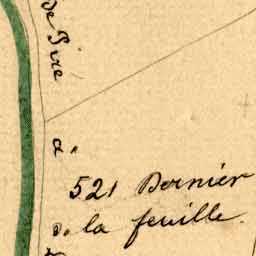 de Piré
a
521 Dernier
de la feuille.